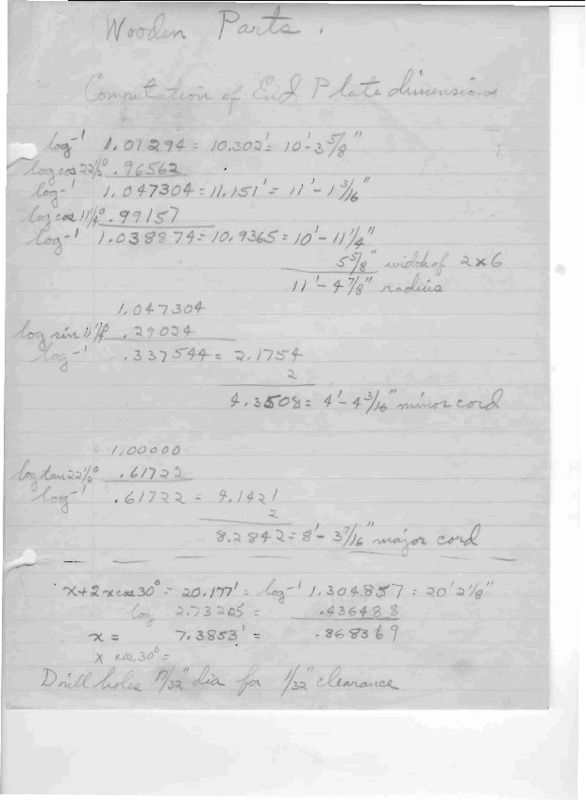 Wooden Parts.
Computation of End Plate dimensions
log⁻¹ 1.01294 = 10.302' = 10'-3 5/8"
log cos 22½° .96562
log⁻¹ 1.047304 = 11.151' = 11'-1 3/16"
log cos 11¼° .99157
log⁻¹ 1.038874 = 10.9365 = 10'-11¼"
5 5/8" width of 2x6
11'-4 7/8" radius
1.047304
log sin 11¼° .29024
log⁻¹ .337544 = 2.1754
2
4.3508 = 4'-4 3/16" minor cord
1.00000
log tan 22½° .61722
log⁻¹ .61722 = 4.1421
2
8.2842 = 8'-3 7/16" major cord
x+2x cos 30° = 20.177' = log⁻¹ 1.304857 = 20' 2 1/8"
log 2.73205 = .436488
x = 7.3853' = .868369
x cos 30° =
Drill holes 17/32" dia for 1/32" clearance